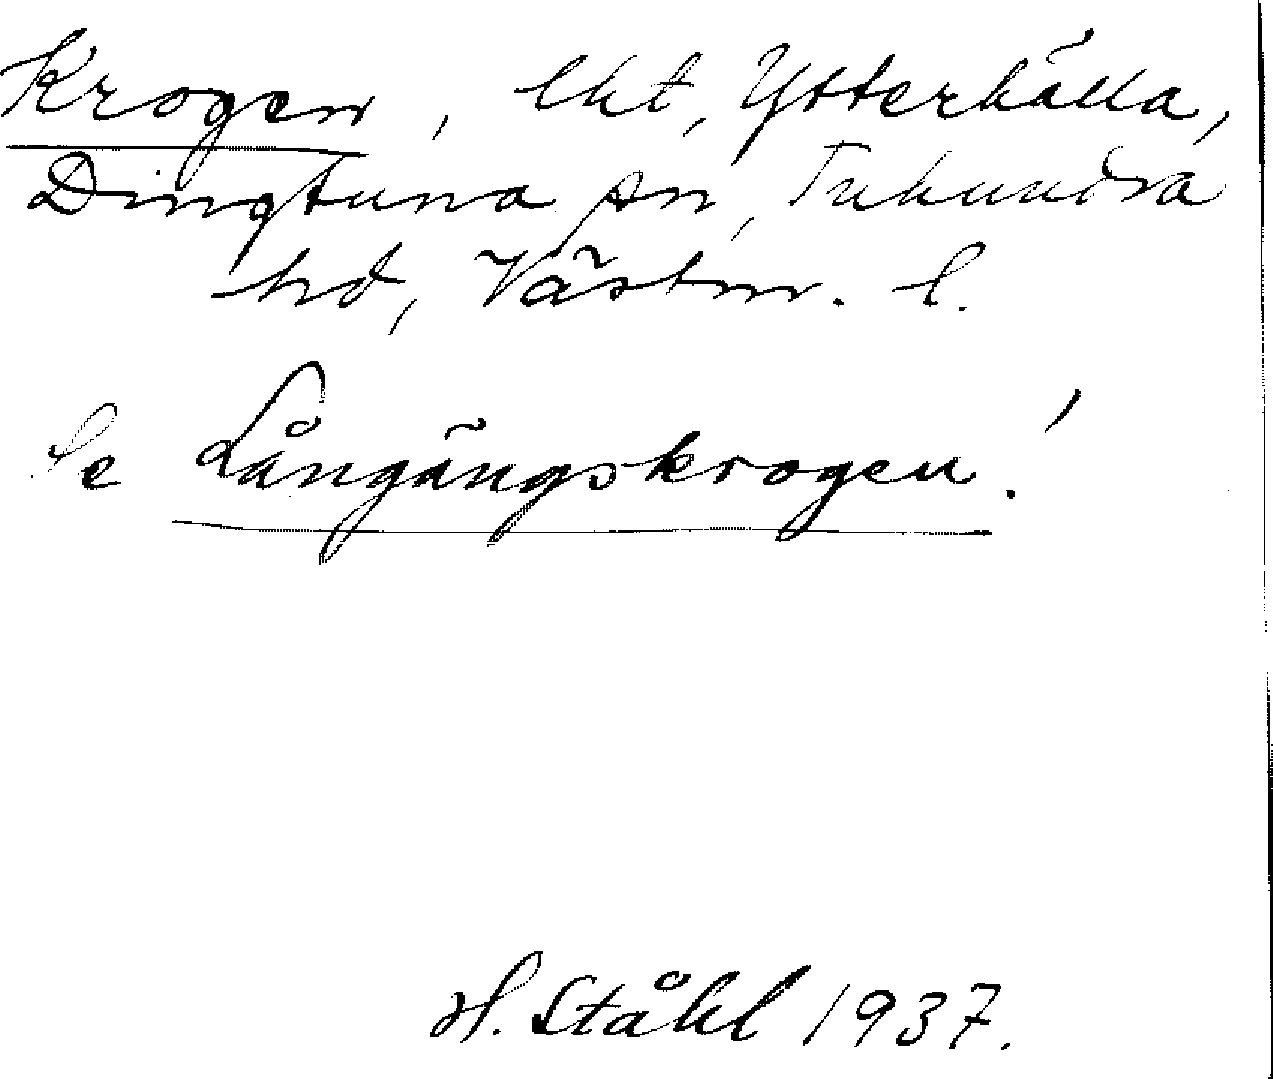 Krogen, lht, Ytterhälla,
Dingtuna sn, Tuhundra
hd, Västm. l.
Se Långängskrogen!
H. Ståhl 1937.